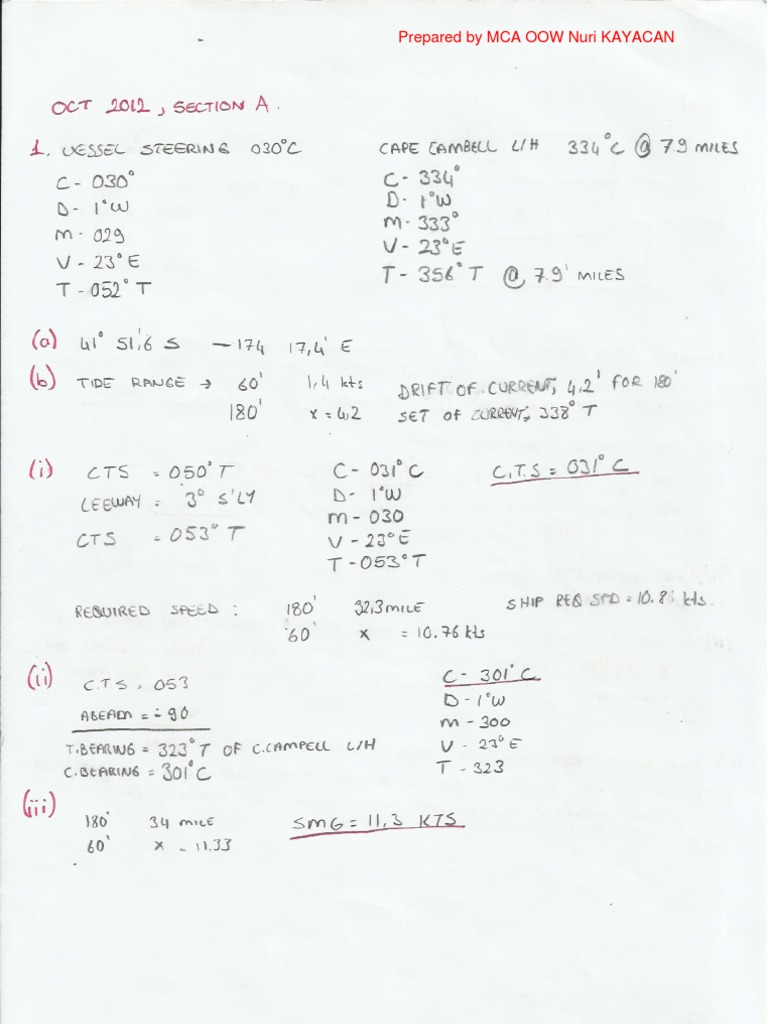 Prepared by MCA OOW Nuri KAYACAN
OCT 2012, SECTION A.
1. VESSEL STEERING 030°C
C - 030°
D - 1°W
M - 029
V - 23°E
T - 052° T
CAPE CAMBELL L/H 334°C @ 7.9 MILES
C - 334°
D - 1°W
M - 333°
V - 23°E
T - 356° T @ 7.9' MILES
(a) 41° 51,6' S - 174 17,4' E
(b) TIDE RANGE → 60' 1,4 kts
180' x = 4,2
DRIFT OF CURRENT, 4,2' FOR 180'
SET OF CURRENT, 338° T
(i) CTS = 050° T
LEEWAY = 3° S'LY
CTS = 053° T
C - 031°C
D - 1°W
M - 030
V - 23°E
T - 053°T
C.T.S = 031° C
REQUIRED SPEED : 180' 32,3 MILE
60' x = 10.76 kts
SHIP REQ SPD = 10.8 kts.
(ii) C.T.S = 053
ABEAM = - 90
T.BEARING = 323° T OF C.CAMPELL L/H
C.BEARING = 301° C
C - 301° C
D - 1°W
M - 300
V - 23°E
T - 323
(iii) 180' 34 MILE
60' x - 11.33
SMG = 11,3 KTS